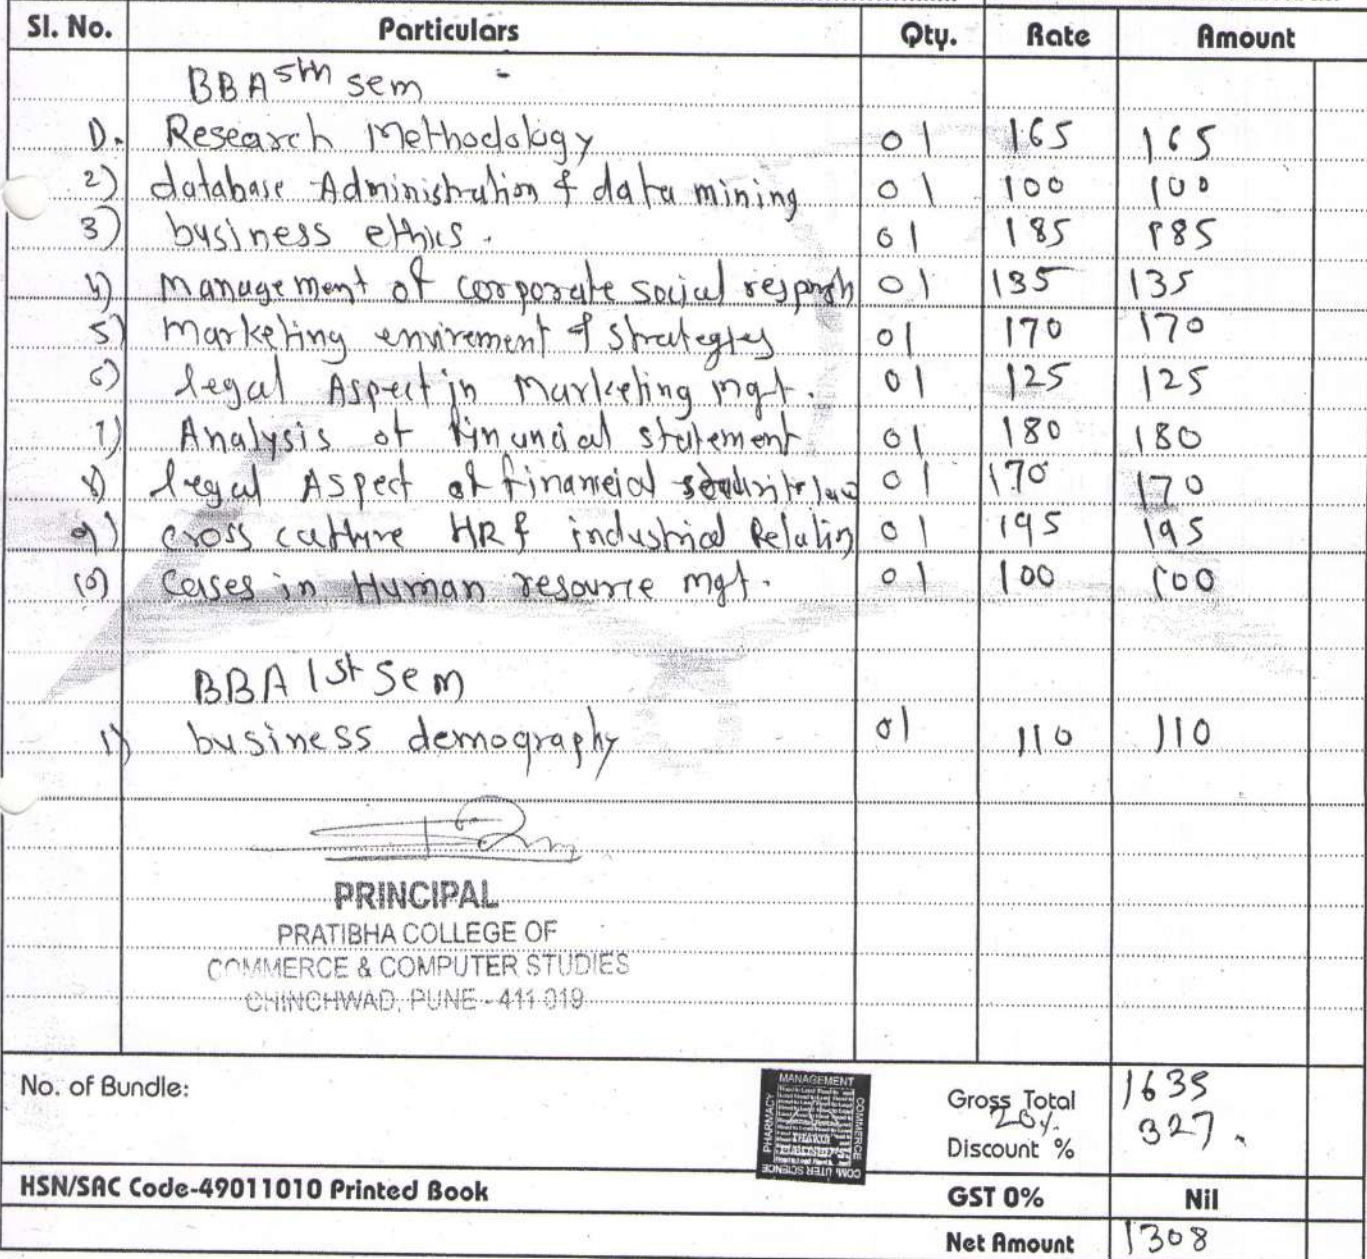 Sl. No. Particulars Qty. Rate Amount
BBA 5th sem -
1). Research Methodology 01 165 165
2) database Administration & data mining 01 100 100
3) business ethics. 01 185 185
4) Management of corporate social responsh 01 135 135
5) Marketing envirement & strategies 01 170 170
6) legal Aspect in Marketing mgt. 01 125 125
7) Analysis of financial statement 01 180 180
8) legal Aspect of financial law 01 170 170
9) cross cutture HR & industrial Relation 01 195 195
10) Cases in Human resource mgt. 01 100 100
BBA 1st Sem
1) business demography 01 110 110
PRINCIPAL
PRATIBHA COLLEGE OF
COMMERCE & COMPUTER STUDIES
CHINCHWAD, PUNE - 411 019
No. of Bundle:
MANAGEMENT
COMMERCE
PHARMACY
COMPUTER SCIENCE
Gross Total 1635
20%
Discount % 327.
HSN/SAC Code-49011010 Printed Book GST 0% Nil
Net Amount 1308